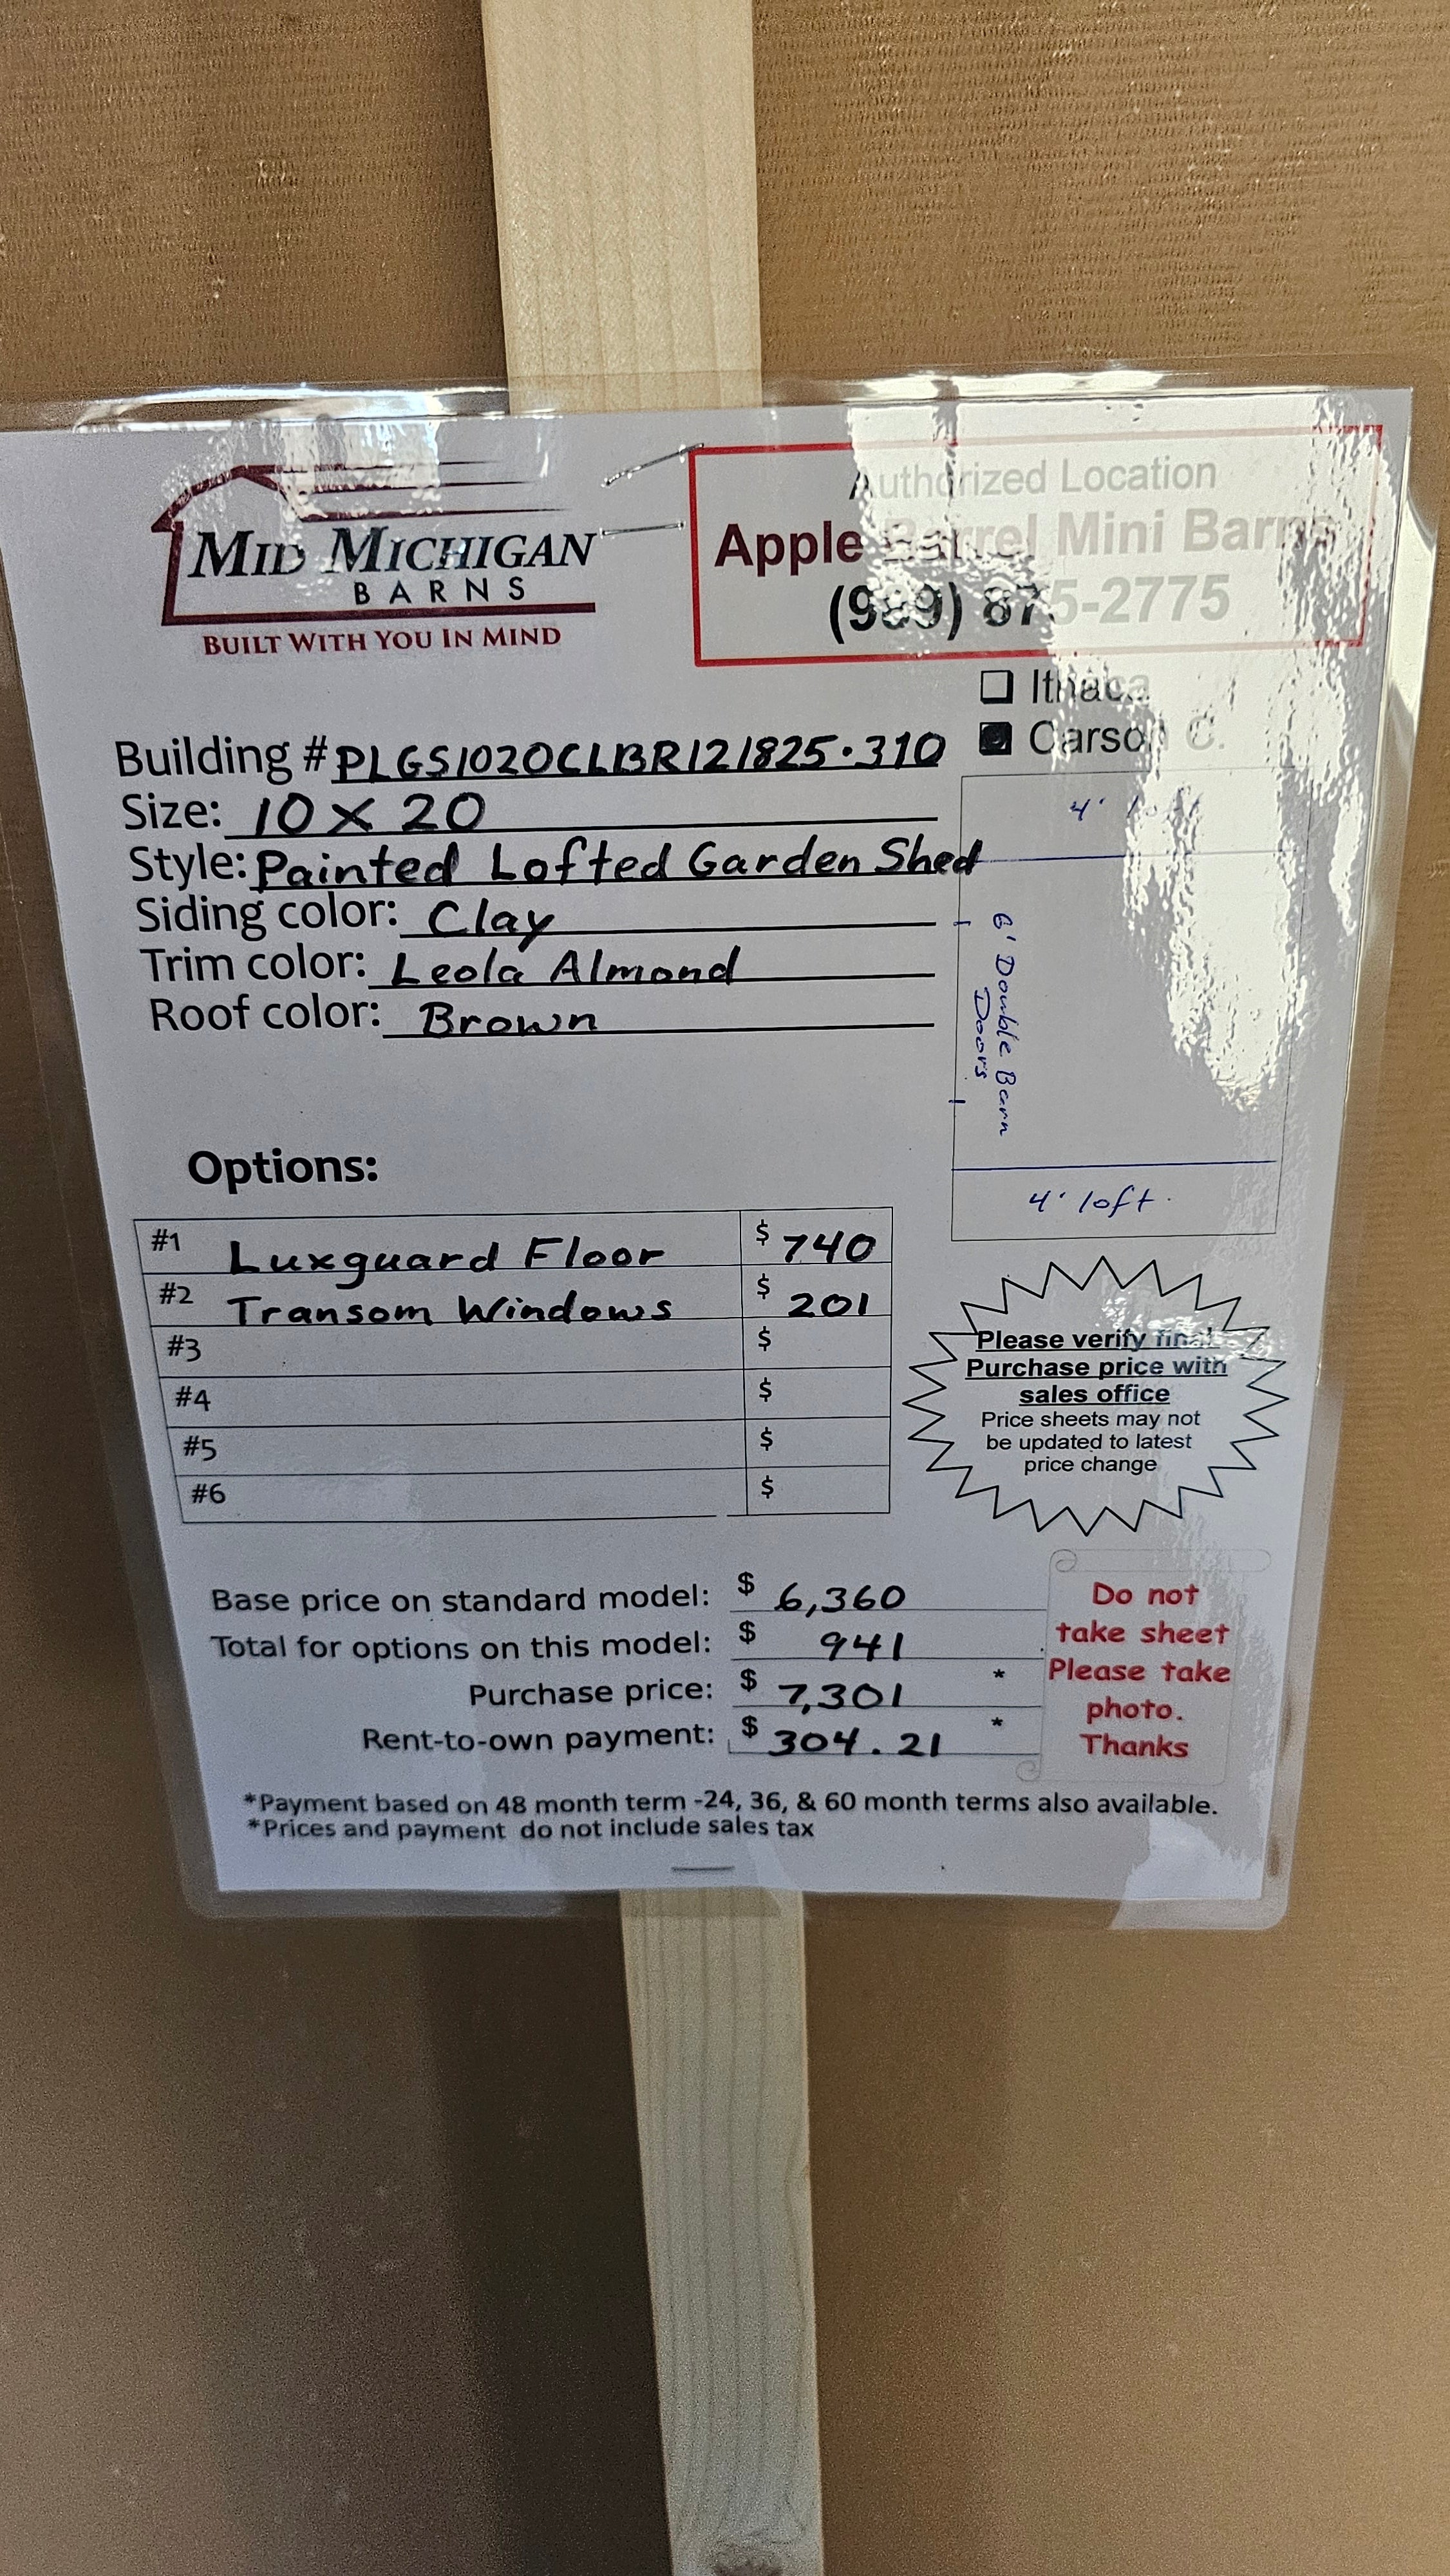 MID MICHIGAN
BARNS
BUILT WITH YOU IN MIND
Authorized Location
Apple Barrel Mini Barns
(989) 875-2775
Ithaca
Carson C.
Building # PLGS1020CLBR121825.310
Size: 10 x 20
Style: Painted Lofted Garden Shed
Siding color: Clay
Trim color: Leola Almond
Roof color: Brown
4' loft
6' Double Barn
Doors
4' loft.
Options:
#1 Luxguard Floor $ 740
#2 Transom Windows $ 201
#3 $
#4 $
#5 $
#6 $
Please verify final
Purchase price with
sales office
Price sheets may not
be updated to latest
price change
Base price on standard model: $ 6,360
Total for options on this model: $ 941
Purchase price: $ 7,301 *
Rent-to-own payment: $ 304.21 *
Do not
take sheet
Please take
photo.
Thanks
*Payment based on 48 month term -24, 36, & 60 month terms also available.
*Prices and payment do not include sales tax